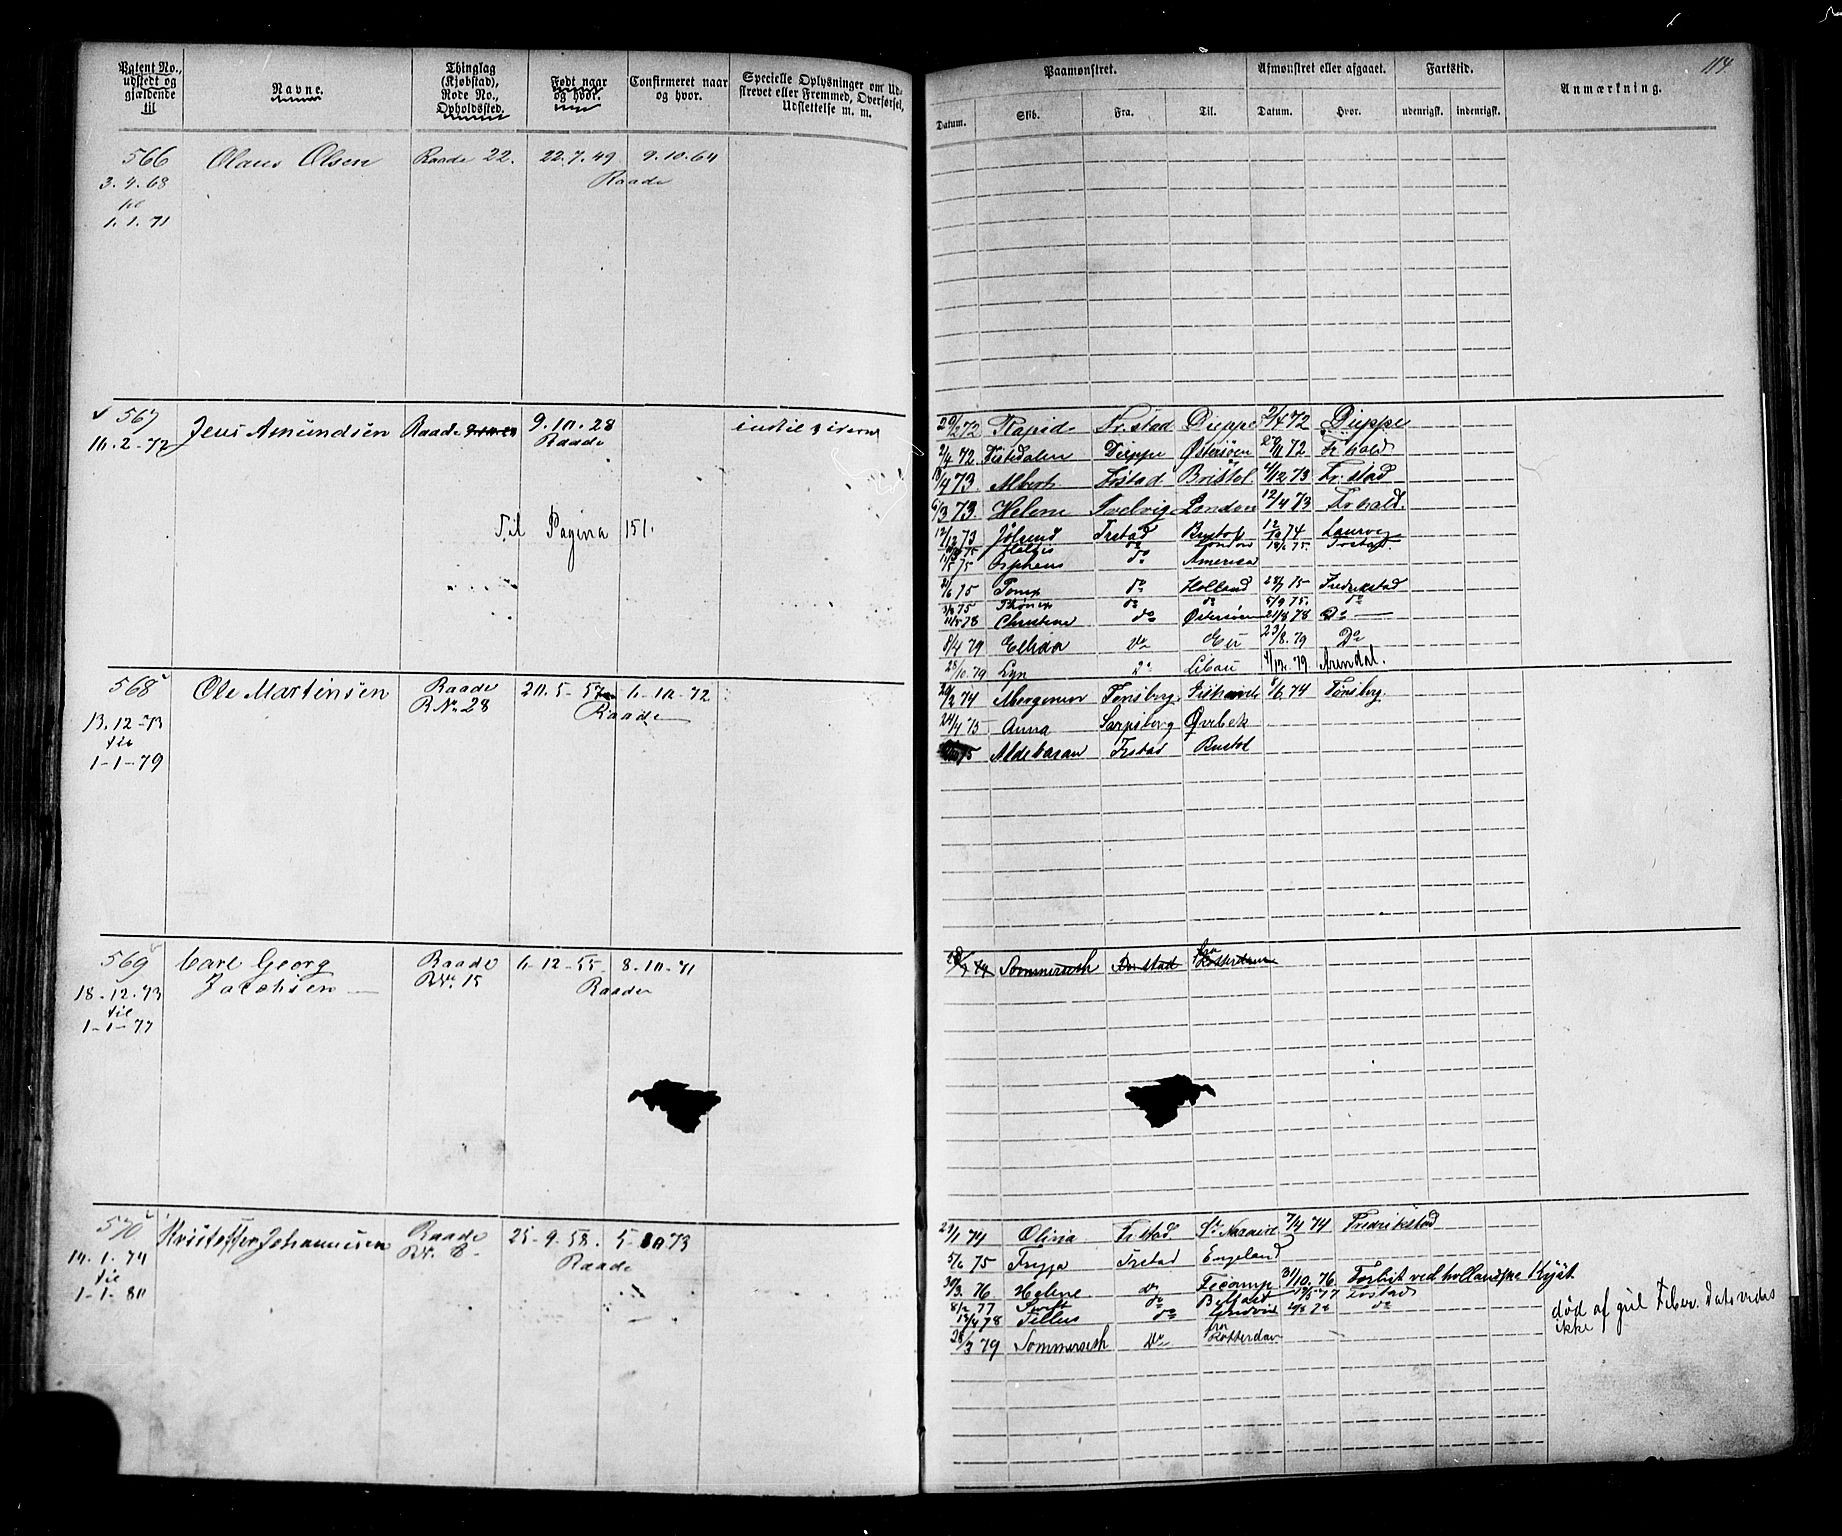 114.
Patent No., udstedt og gjældende til
Navne.
Thinglag (Kjøbstad), Rode No., Opholdssted.
Født naar og hvor.
Confirmeret naar og hvor.
Specielle Oplysninger om Udskrevet eller Fremmed, Overførsel, Udslettelse m. m.
Paamønstret.
Afmønstret eller afgaaet.
Fartstid.
Anmærkning.
Datum. Skib. Fra. Til. Datum. Hvor. udenrigsk. indenrigsk.
566 Olaus Olsen Raade 22. 22.7.49 9.10.64
3.4.68 Raade
til
1.1.71
567 Jens Amundsen Raade 9.10.28 indtil videre
10.2.72 Raade
Til Pagina 151.
2/72 Rapid Fr.stad Dieppe 2/4 72 Dieppe
2/4 72 Tistedalen Dieppe Østersøen 72 Fr.hald
4 73 Albert Frstad Bristol 4/12 73 Fr.stad
6/3 73 Helene Svelvig London 12/4 73 Frhald.
12/12 73 Frstad 74 Laurvig
75 do London 75. Frstad.
75 Orpheus do America
6 75 do Holland 75 Fredrikstad
75 do do 5/9 75. do
78 Christine do Østersøen 21/8 78 Do
8/4 79 Ellida do 23/8. 79 Do
28/10. 79 Lyn do Libau 4/12. 79 Arendal.
568 Ole Martinsen Raade 20.5-57 6-10-72
R No. 28 Raade
13.12-73
til
1-1-79
2 74 Morgenen Tønsberg 8/6. 74 Tønsberg.
24/4 75 Anna Sarpsborg
75 Aldebaran Frstad Bristol
569 Carl Georg Raade 6-12-55- 8-10-71
Jacobsen R No. 15 Raade
18.12.73
til
1-1-77
74 Sommerseth Fr.stad fra Rotterdam
570 Kristoffer Johannesen Raade 25-9-58. 5-10 73
R No. 8 Raade
14.1.74
til
1-1-80
29/1 74 Olivia Fr.stad St. Nazaire 7/4 74 Fredrikstad
5/6 75 Freya Frstad Engeland
30/3. 76 Helene do Fecamp 31/10. 76. Forlist ved hollandske Kyst
8/2 77 Swift do Belfast 77 Frstad
12/4 78 Tellus do do
28/3 79 Sommerseth Do fra Rotterdam
død af gul Feber. Dato vides
ikke